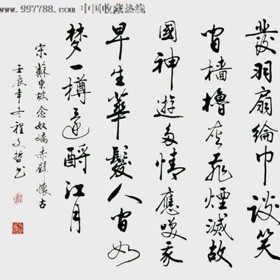 www.997788.com 中国收藏热线
發羽扇綸巾談笑
間檣櫓灰飛煙滅故
國神遊多情應笑我
早生華髮人間如
夢一樽還酹江月
宋蘇東坡念奴嬌赤壁懷古
壬辰年冬程文